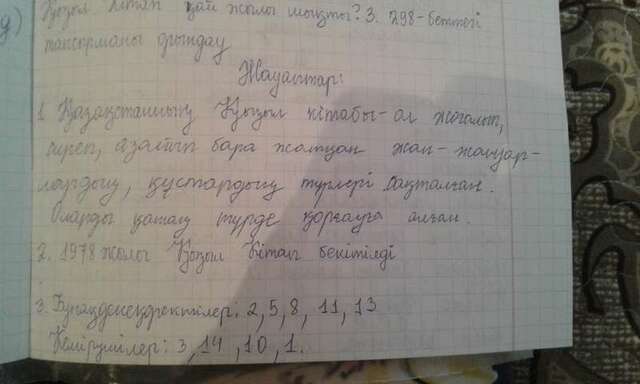 Қызыл Кітап қай жылы шықты? 3. 298-беттегі
тапсырманы орындау
Жауаптар:
1. Қазақстанның Қызыл кітабы-ол жоғалып,
азайтып бара жатқан жан-жануар-
лардың, құстардың түрлері сақталған.
Оларды қатаң түрде қорғауға алған.
2. 1978 жылы Қызыл Кітап бекітілді
3. 2, 5, 8, 11, 13
Кемірушілер: 3, 14, 10, 1.